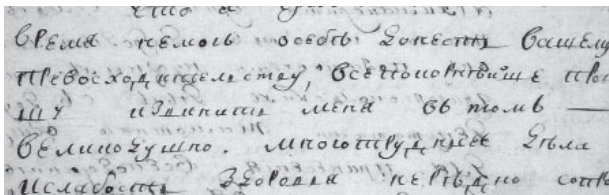 время немогъ особъ донесть вашему
превосходителству, всепокорнейше про
шу извинить меня въ томъ
великодушно. многотрудные дела
и слабость здоровья